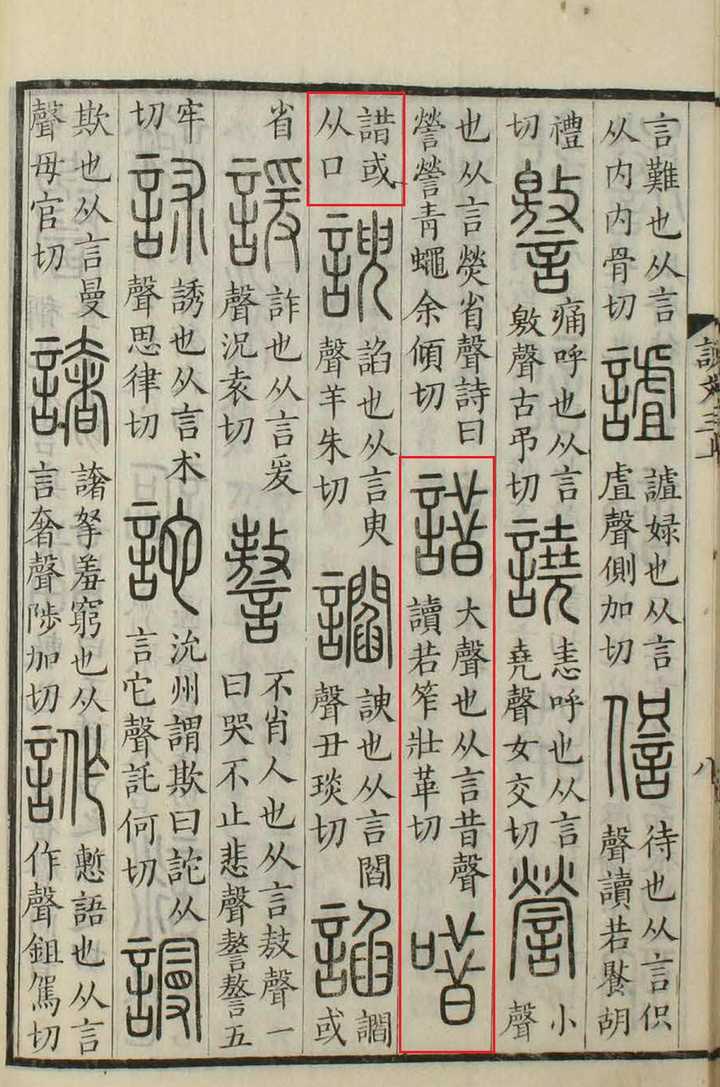 言難也从言
从内内骨切
謯
謯娽也从言
虘聲側加切
待也从言伿
聲讀若胡
禮
切
譥
痛呼也从言
敫聲古弔切
譊
恚呼也从言
堯聲女交切
謍
小
聲
也从言熒省聲詩曰
謍謍青蠅余傾切
諎
大聲也从言昔聲
讀若笮壯革切
唶
諎或
从口
諛
諂也从言臾
聲羊朱切
讇
諛也从言閻
聲丑琰切
諂
讇或
省
諼
詐也从言爰
聲況袁切
謷
不肖人也从言敖聲一
曰哭不止悲聲謷謷五
牢
切
訹
誘也从言术
聲思律切
詑
沇州謂欺曰詑从
言它聲託何切
謾
欺也从言曼
聲母官切
譇
譇拏羞窮也从
言奢聲陟加切
䛫
慙語也从言
作聲鉏駕切
說文三上
八